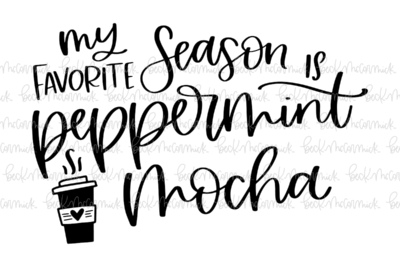 my
FAVORITE Season IS
peppermint
mocha
book McCormick